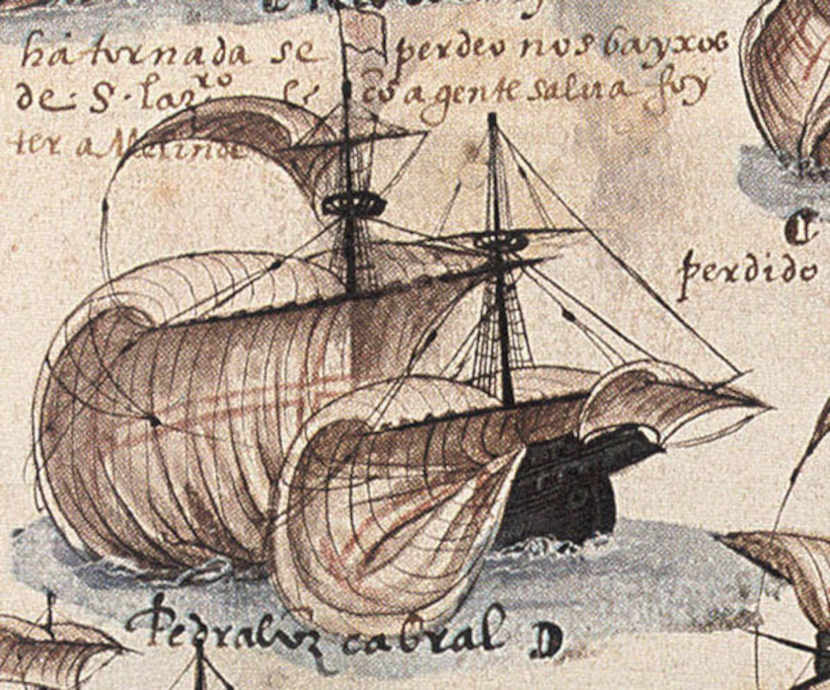 há tornada se perdeo nos bayxos
de: S. lazro e cō a gente salua foy
ter a Melinde
perdido
Pedralvz cabral D